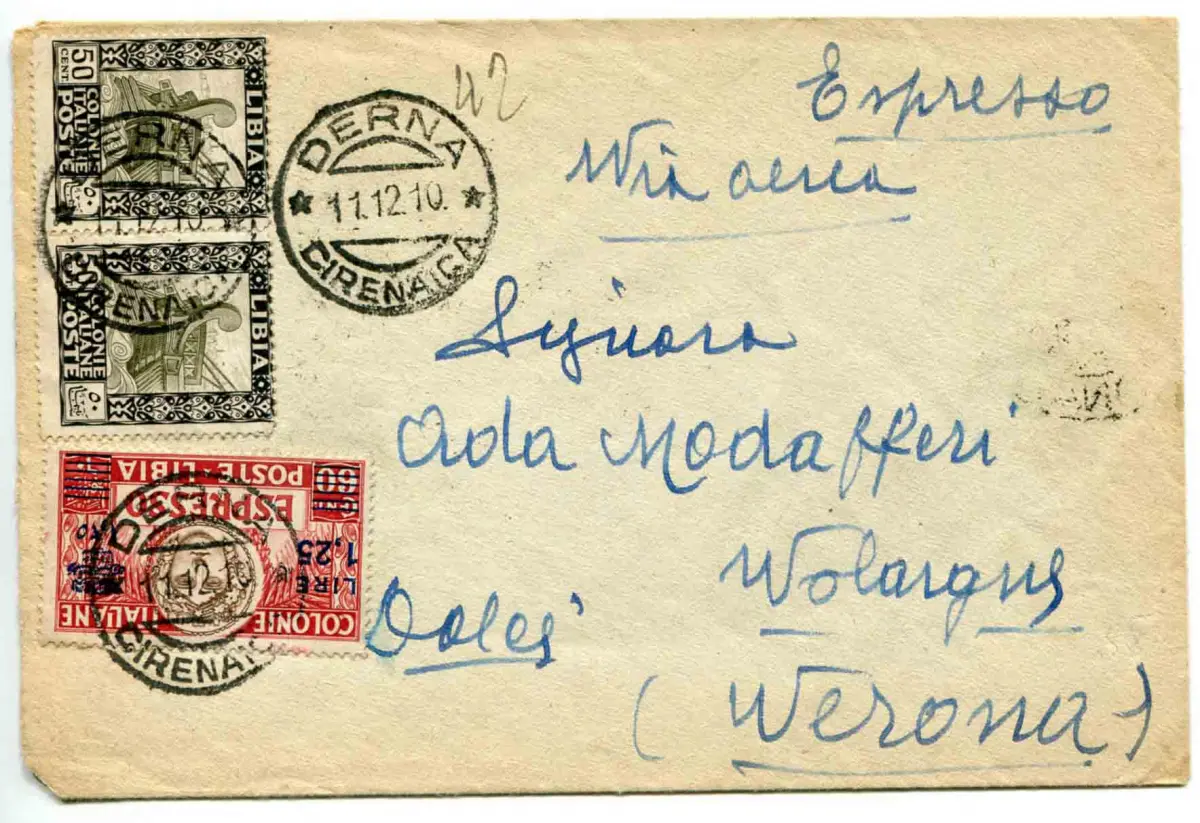 Espresso
Via aerea
Signora
Ada Modafferi
Volargne
Dolcé
(Verona)
42
DERNA
11.12.10.
CIRENAICA
LIBIA
COLONIE ITALIANE
POSTE
50 CENT.
DERNA
11.12.10
CIRENAICA
LIBIA
COLONIE ITALIANE
POSTE
50
COLONIE ITALIANE
LIRE 1,25
60
ESPRESSO
POSTE·LIBIA
DERNA
11.12.10
CIRENAI